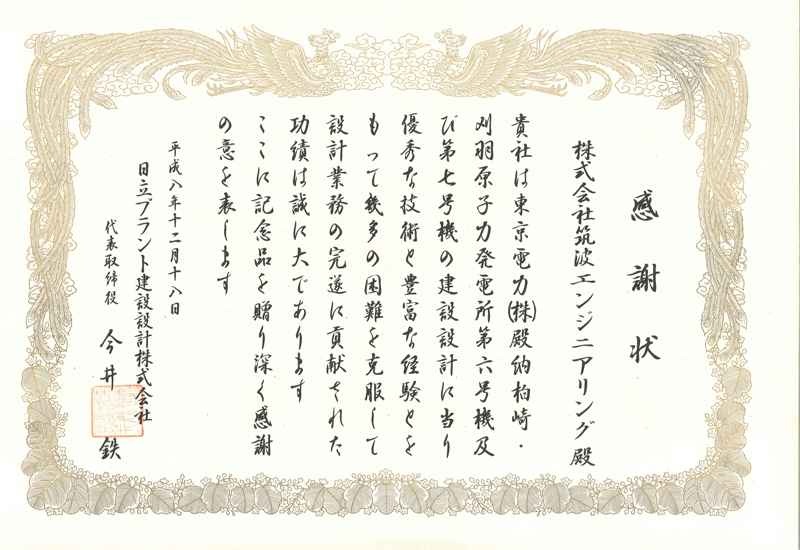 感謝状
株式会社筑波エンジニアリング殿
貴社は東京電力(株)殿納柏崎・
刈羽原子力発電所第六号機及
び第七号機の建設設計に当り
優秀な技術と豊富な経験とを
もって幾多の困難を克服して
設計業務の完遂に貢献された
功績は誠に大であります
ここに記念品を贈り深く感謝
の意を表します
平成八年十二月十八日
日立プラント建設設計株式会社
代表取締役 今井 鉄